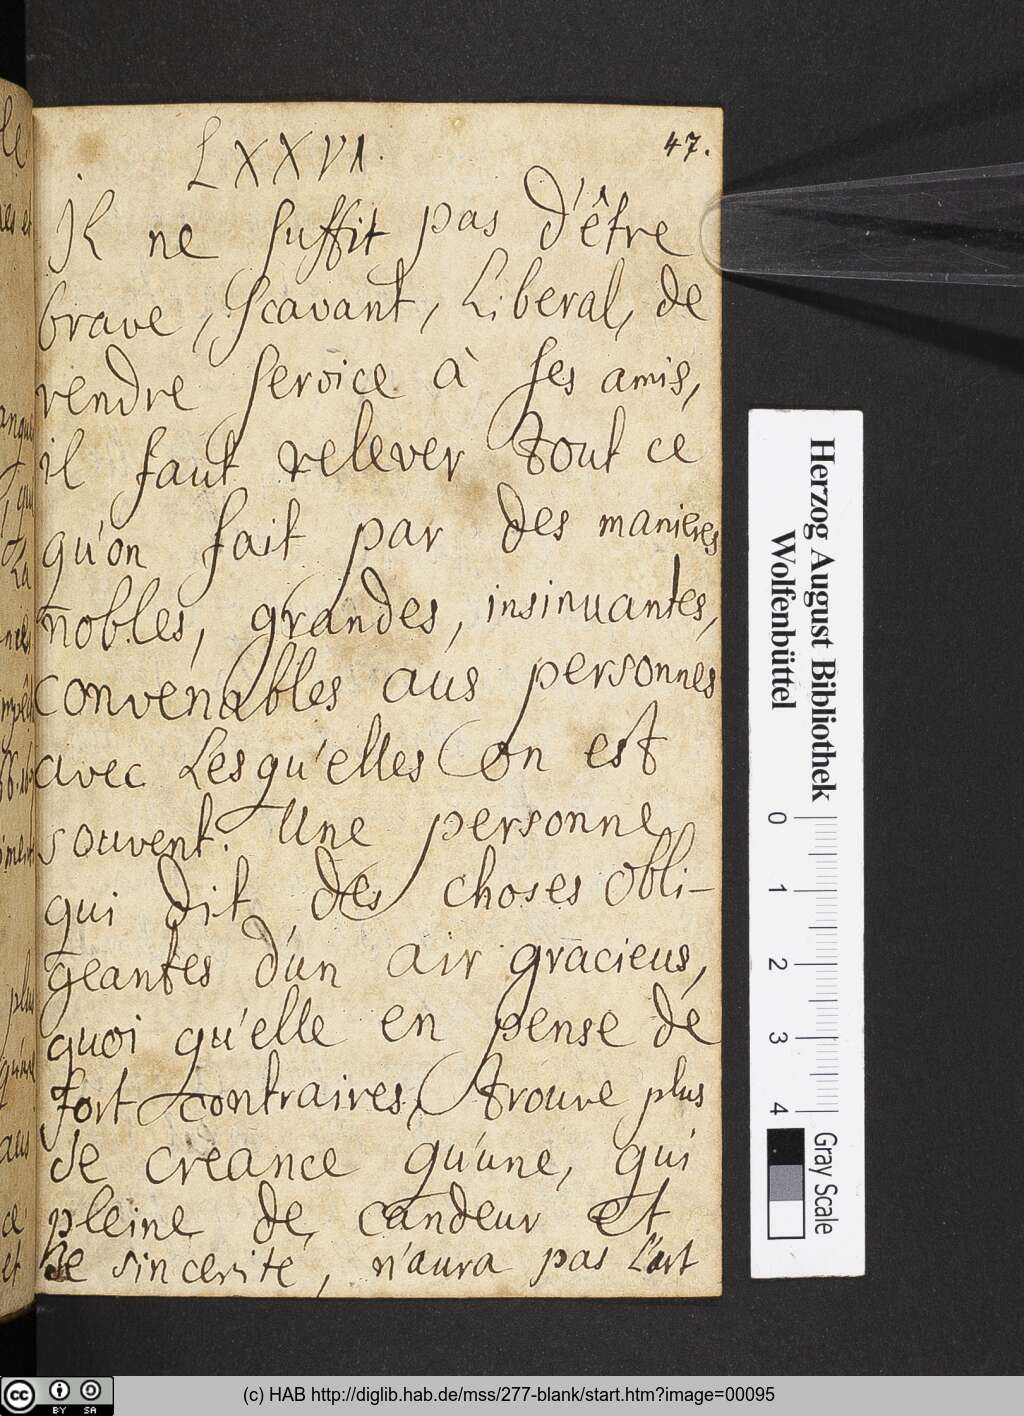 47.
LXXVI.
Il ne suffit pas d'être
brave, scavant, Liberal, de
rendre service à ses amis,
il faut relever tout ce
qu'on fait par des manieres
nobles, grandes, insinuantes,
convenables aus personnes
avec Lesqu'elles on est
souvent. Une personne
qui dit des choses obli-
geantes d'un air gracieus,
quoi qu'elle en pense de
fort contraires, trouve plus
de creance qu'une, qui
pleine de candeur et
de sincerite, n'aura pas L'art
Herzog August Bibliothek
Wolfenbüttel
0 1 2 3 4
Gray Scale
cc BY SA
(c) HAB http://diglib.hab.de/mss/277-blank/start.htm?image=00095